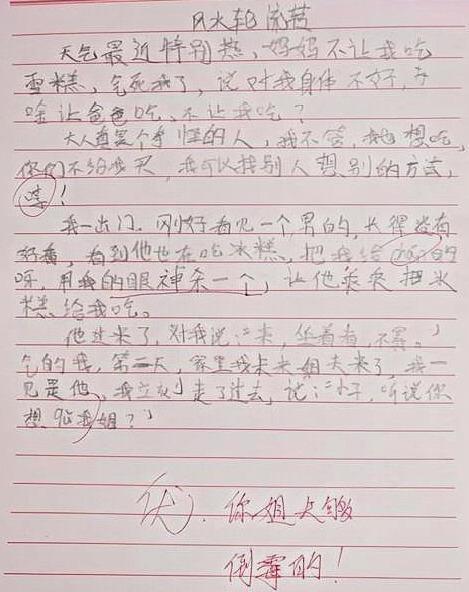 风水轮流转
天气最近特别热，妈妈不让我吃
雪糕，气死我了，说对我身体不好，为
啥让爸爸吃，不让我吃？
大人真是个奇怪的人，我不管，我想吃，
你们不给我买，我可以找别人想别的方法，
哼！
我一出门，刚好看见一个男的，长得没有
我高，看到他也在吃冰糕，把我给
呀，用我的眼神杀一个，让他乖乖把冰
糕给我吃。
他过来了，对我说：“来，坐着看，不累。”
气的我，第二天，家里我未来姐夫来了，我一
见是他，我立刻走了过去，说：“小子，听说你
想娶我姐？”
优，你姐夫够
倒霉的！